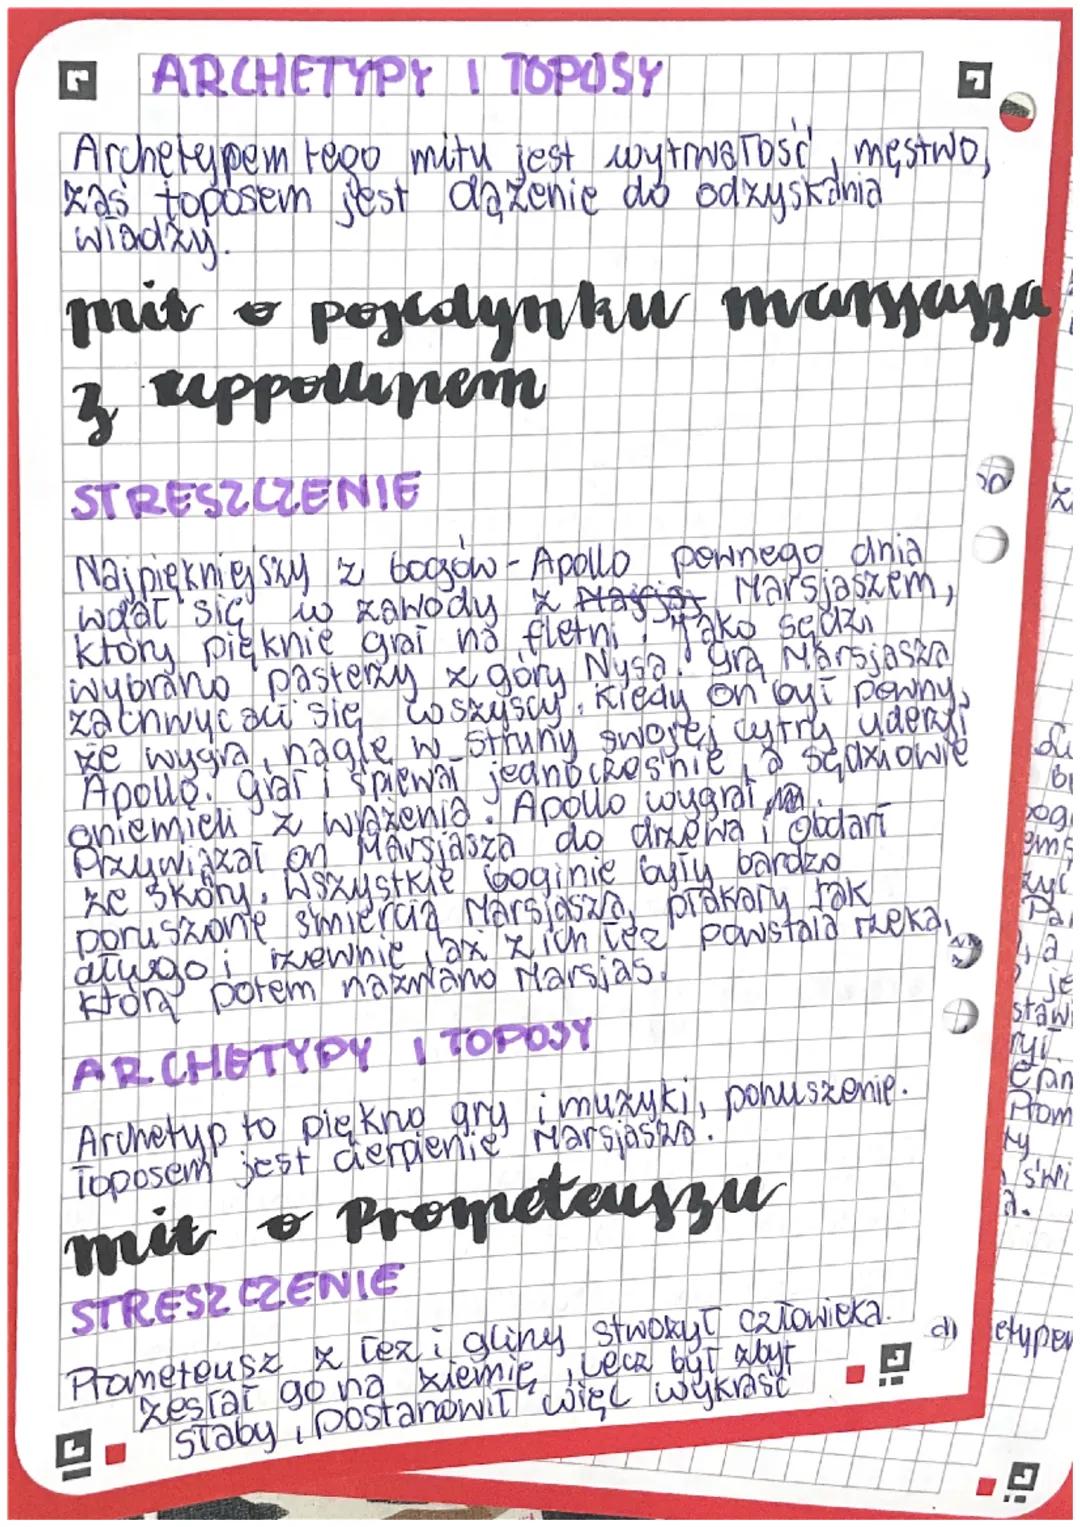 ARCHETYPY I TOPOSY
Archetypem tego mitu jest wytrwałość, męstwo,
zaś toposem jest dążenie do odzyskania
władzy.
mit o pojedynku marsjasza
z appollinem
STRESZCZENIE
Najpiękniejszy z bogów - Apollo pewnego dnia
wdał się w zawody z Marsjaszem,
który pięknie grał na fletni. Jako sędzi
wybrano pasterzy z góry Nysa. Grą Marsjasza
zachwycali się wszyscy. Kiedy on był pewny,
że wygra, nagle w struny swojej cytry uderzył
Apollo. Grał i śpiewał jednocześnie, a sędziowie
oniemieli z wrażenia. Apollo wygrał.
Przywiązał on Marsjasza do drzewa i obdarł
ze skóry. Wszystkie boginie były bardzo
poruszone śmiercią Marsjasza, płakały tak
długo i rzewnie, aż z ich łez powstała rzeka,
którą potem nazwano Marsjas.
ARCHETYPY I TOPOSY
Archetyp to piękno gry i muzyki, poruszenie.
Toposem jest cierpienie Marsjasza.
mit o Prometeuszu
STRESZCZENIE
Prometeusz z łez i gliny stwożył człowieka.
Zesłał go na ziemię, lecz był zbyt
słaby, postanowił więc wykraść